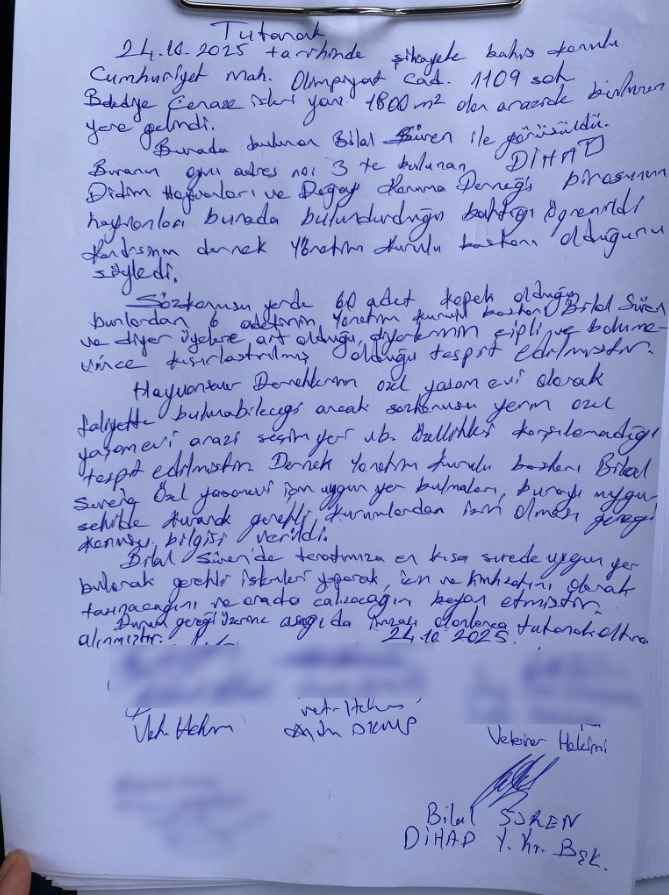 Tutanak
24.10.2025 tarihinde şikayete bahis konulu
Cumhuriyet Mah. Olimpiyat Cad. 1109 sok
Belediye Cenaze işleri yanı 1800 m² olan arazide bulunan
yere gelindi.
Burada bulunan Bilal Süren ile görüşüldü.
Buranın aynı adres no: 3 te bulunan DİHAD
Didim Hayvanları ve Doğayı Koruma Derneği binasının
hayvanları burada bulundurduğu baktığı öğrenildi
Kendisinin dernek Yönetim kurulu başkanı olduğunu
söyledi.
Sözkonusu yerde 60 adet köpek olduğu
bunlardan 6 adetinin Yönetim kurulu başkanı Bilal Süren
ve diğer üyelere ait olduğu, diğerlerinin çipli ve
kısırlaştırılmış olduğu tespit edilmiştir.
Hayvansever Derneklerin özel yaşam evi olarak
faliyette bulunabileceği ancak sözkonusu yerin özel
yaşamevi arazi seçim yeri vb. özellikleri karşılamadığı
tespit edilmiştir. Dernek Yönetim kurulu başkanı Bilal
Süren'e Özel yaşamevi için uygun yer bulmaları, burayı uygun
şekilde kurarak gerekli kurumlardan izin alması gereği
konusu bilgisi verildi.
Bilal Süren'de tarafımıza en kısa sürede uygun yer
bularak gerekli işlemleri yaparak, izin ve olarak
taşınacağını ve orada çalışacağın beyan etmiştir.
Durum gereği üzerine aşağıda imzası olanlarca tutanak altına
alınmıştır. 24.10.2025.
Vet. Hekim
Vet. Hekim
Aydın DKMP
Veteriner Hekimi
Bilal SÜREN
DİHAD Y. Kr. Bşk.